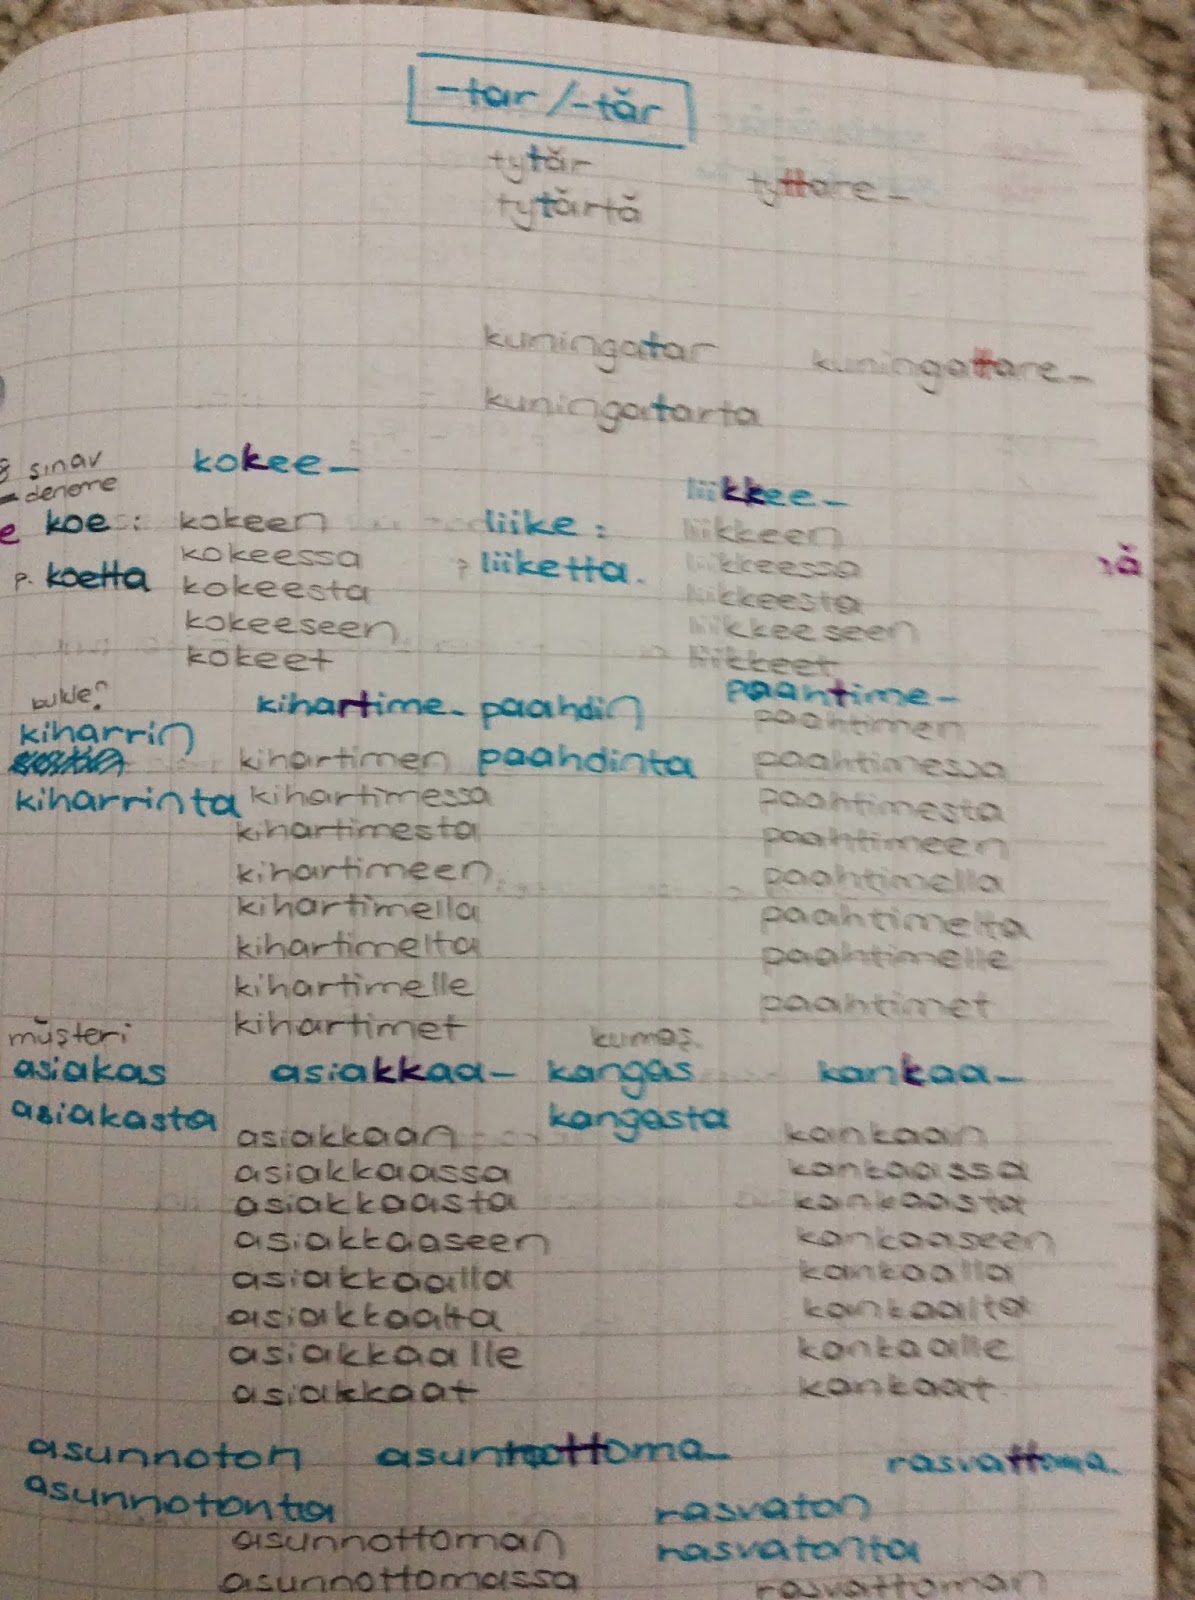 -tar / -tär
tytär
tyttare-
tytärtä
kuningatar
kuningattare-
kuningatarta
sınav kokee-
deneme
liikkee-
koe: kokeen liike: liikkeen
kokeessa
p. koetta ? liiketta. liikkeessa
kokeesta liikkeesta
kokeeseen liikkeeseen
kokeet liikkeet
bukle?
kihartime- paahdin paahtime-
kiharrin paahtimen
kihartimen paahdinta paahtimessa
kiharrinta kihartimessa paahtimesta
kihartimesta paahtimeen
kihartimeen paahtimella
kihartimella paahtimelta
kihartimelta paahtimelle
kihartimelle paahtimet
müşteri kihartimet kumaş.
asiakas asiakkaa- kangas kankaa-
asiakasta kangasta
asiakkaan kankaan
asiakkaassa kankaassa
asiakkaasta kankaasta
asiakkaaseen kankaaseen
asiakkaalla kankaalla
asiakkaalta kankaalta
asiakkaalle kankaalle
asiakkaat kankaat
asunnoton rasvattoma.
asunnotonta rasvaton
asunnottoman rasvatonta
asunnottomassa rasvattoman